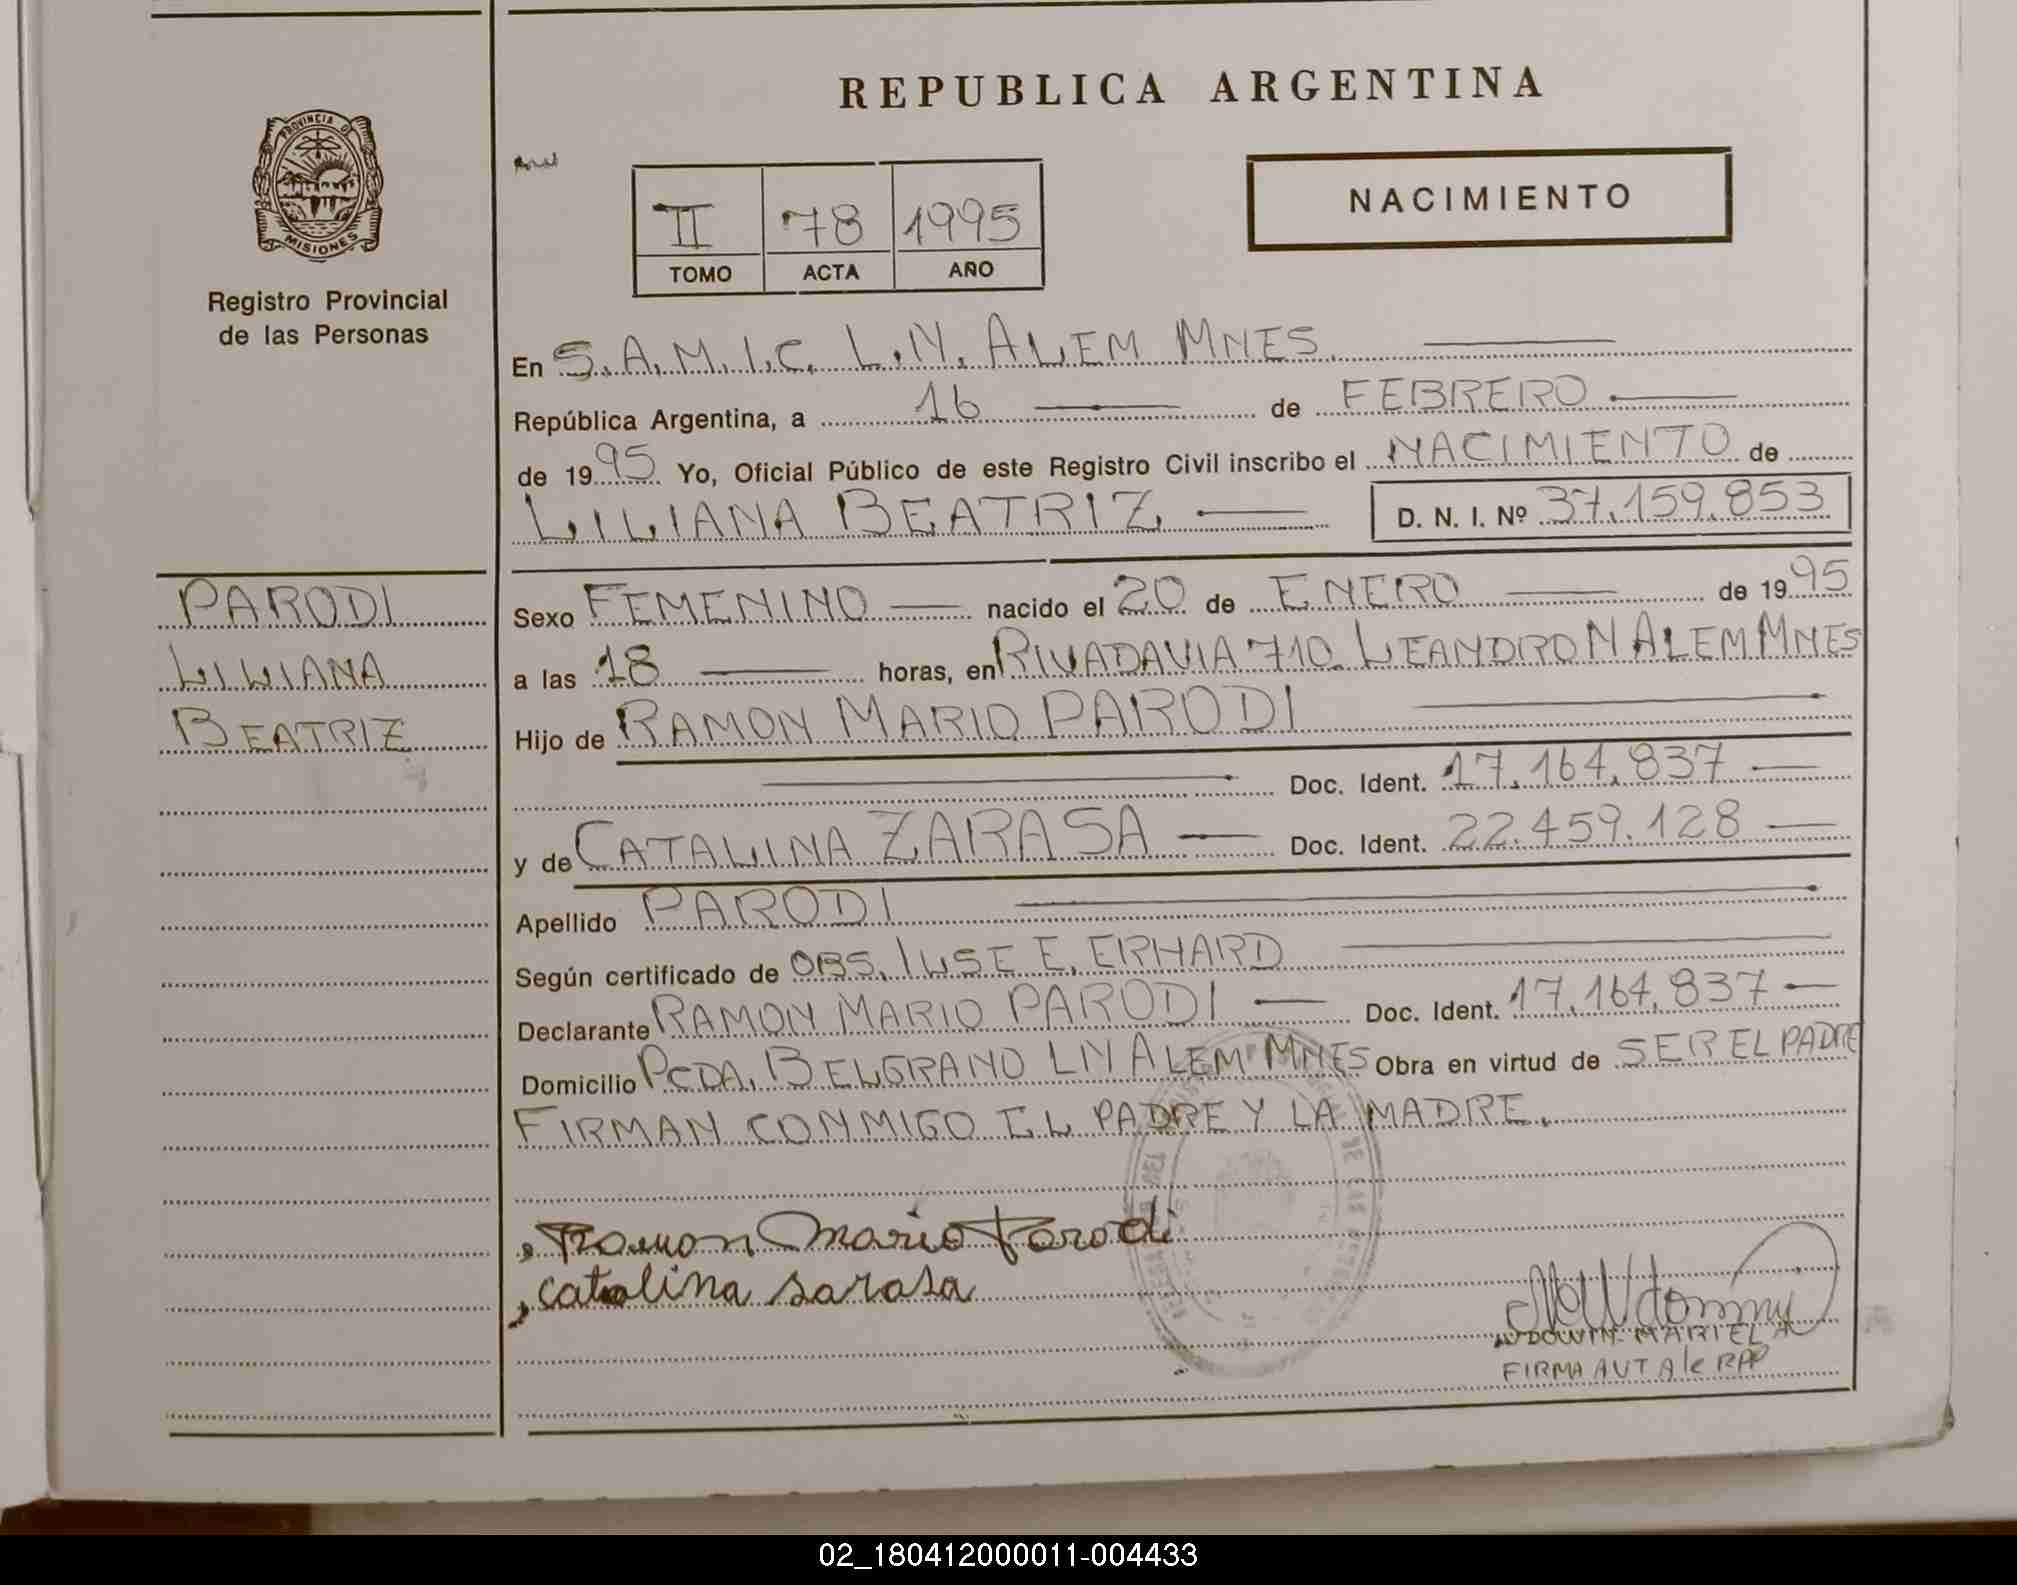 REPUBLICA ARGENTINA
PROVINCIA DE
MISIONES
Registro Provincial
de las Personas
NACIMIENTO
II 78 1995
TOMO ACTA AÑO
En S.A.M.I.C. L.N. ALEM MNES.
República Argentina, a 16 de FEBRERO
de 1995 Yo, Oficial Público de este Registro Civil inscribo el NACIMIENTO de
LILIANA BEATRIZ D. N. I. Nº 37.159.853
PARODI
LILIANA
BEATRIZ
Sexo FEMENINO nacido el 20 de ENERO de 1995
a las 18 horas, en RIVADAVIA 710. LEANDRO N ALEM MNES
Hijo de RAMON MARIO PARODI
Doc. Ident. 17.164.837
y de CATALINA ZARASA Doc. Ident. 22.459.128
Apellido PARODI
Según certificado de OBS. ILSE E. ERHARD
Declarante RAMON MARIO PARODI Doc. Ident. 17.164.837
Domicilio PCDA. BELGRANO LN ALEM MNES Obra en virtud de SER EL PADRE
FIRMAN CONMIGO EL PADRE Y LA MADRE.
Ramon Mario Parodi
catalina sarasa
MARIELA
FIRMA AUT A/c RPP
02_180412000011-004433